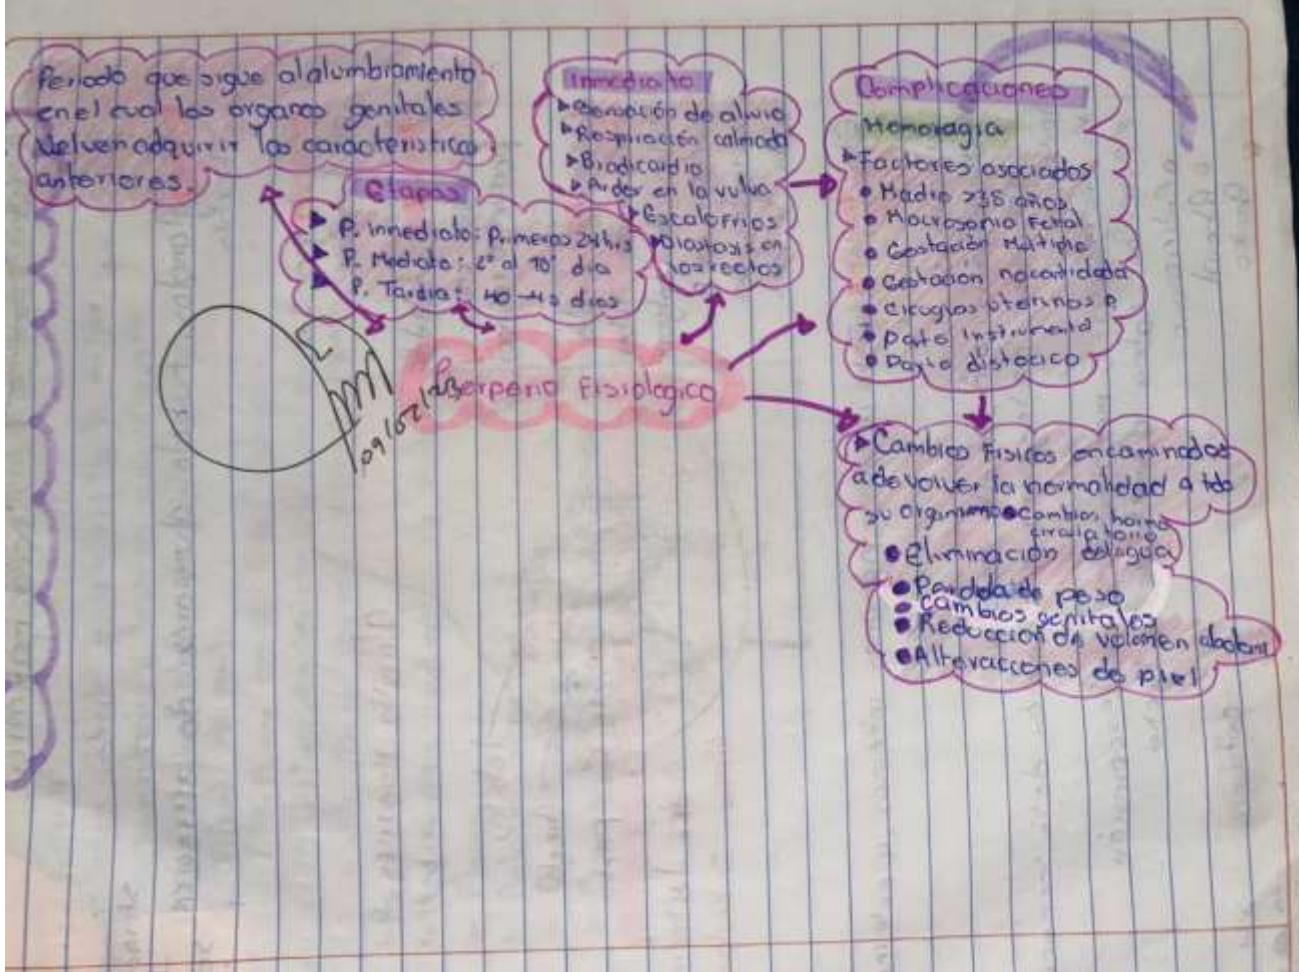 Periodo que sigue al alumbramiento
en el cual los organos genitales
vuelven adquirir las caracteristicas
anteriores.
Etapas
P. inmediato: Primeras 24 hrs
P. Mediato: 2° al 10° dia
P. Tardia: 40-45 dias
Inmediato
Sensación de alivio
Respiración calmada
Bradicardia
Arder en la vulva
Escalofrios
Diastasis en
los rectos
Complicaciones
Hemoragia
Factores asociados
Madre >35 años
Macrosomia Fetal
Gestación Multiple
Gestacion no
Cirugias uterinas P
Parto Instrumental
Parto distocico
Puerperio Fisiologico
09/02/23
Cambios Fisicos encaminados
a devolver la normalidad a tdo
su organismo cambios
circulatorio
eliminación del agua
Perdida de peso
cambios genitales
Reducción de volumen abdomi
Alteracciones de piel